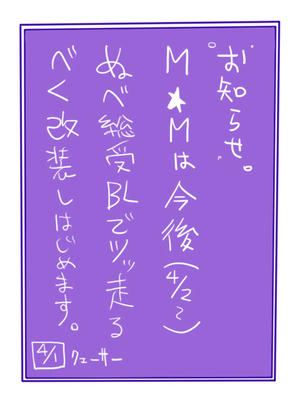 。お知らせ。
M★Mは今後(4/2〜)
ぬべ総受BLでツッ走る
べく改装しはじめます。
4/1 クェーサー